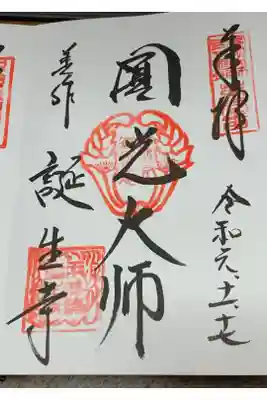 奉拝
令和元、十一、十七
圓光大师
美作
誕生寺